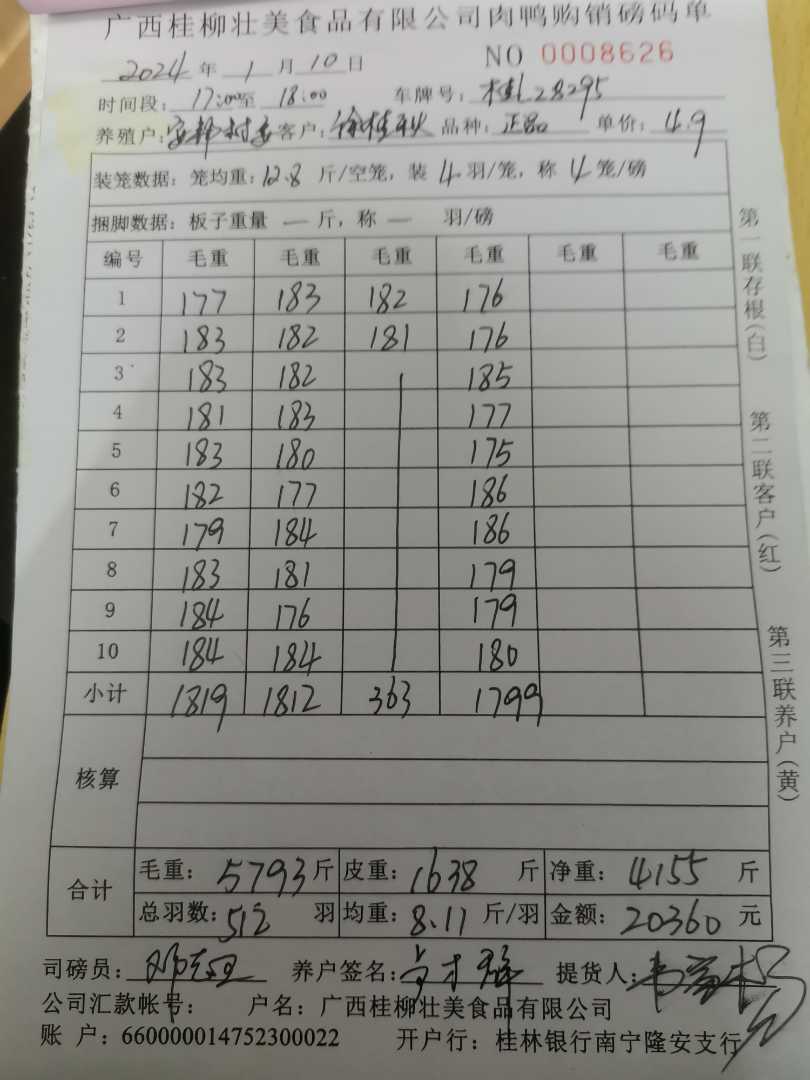 广西桂柳壮美食品有限公司肉鸭购销磅码单
2024年1月10日 NO 0008626
时间段：17:00至18:00 车牌号：桂L28295
养殖户： 客户：徐桂秋 品种：正品 单价：4.9
装笼数据：笼均重：12.8斤/空笼，装4羽/笼，称4笼/磅
捆脚数据：板子重量 — 斤，称 — 羽/磅
编号 毛重 毛重 毛重 毛重 毛重 毛重
1 177 183 182 176
2 183 182 181 176
3 183 182 185
4 181 183 177
5 183 180 175
6 182 177 186
7 179 184 186
8 183 181 179
9 184 176 179
10 184 184 180
小计 1819 1812 363 1799
核算
合计 毛重：5793斤 皮重：1638斤 净重：4155斤
总羽数：512羽 均重：8.11斤/羽 金额：20360元
司磅员： 养户签名： 提货人：
公司汇款帐号： 户名：广西桂柳壮美食品有限公司
账 户：660000014752300022 开户行：桂林银行南宁隆安支行
第一联存根(白) 第二联客户(红) 第三联养户(黄)